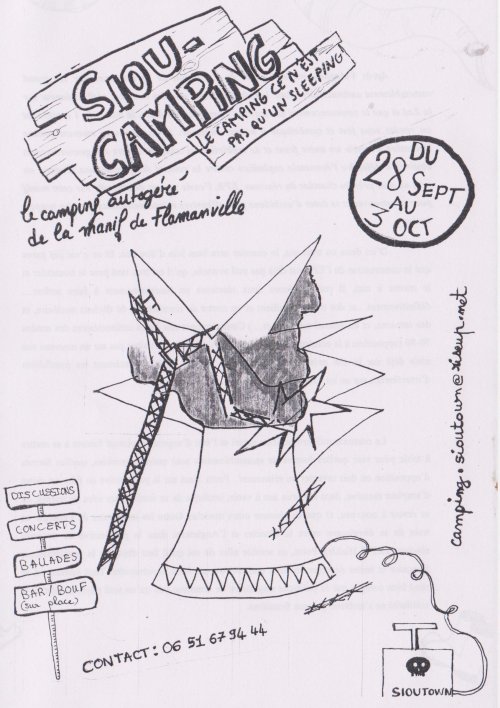 SIOU-
CAMPING
LE CAMPING CE N'EST
PAS QU'UN SLEEPING
le camping autogéré
de la manif de Flamanville
DU
28 SEPT
AU
3 OCT
camping: sioutown@riseup.net
DISCUSSIONS
CONCERTS
BALLADES
BAR/BOUF
(sur place)
CONTACT: 06 51 67 94 44
SIOUTOWN